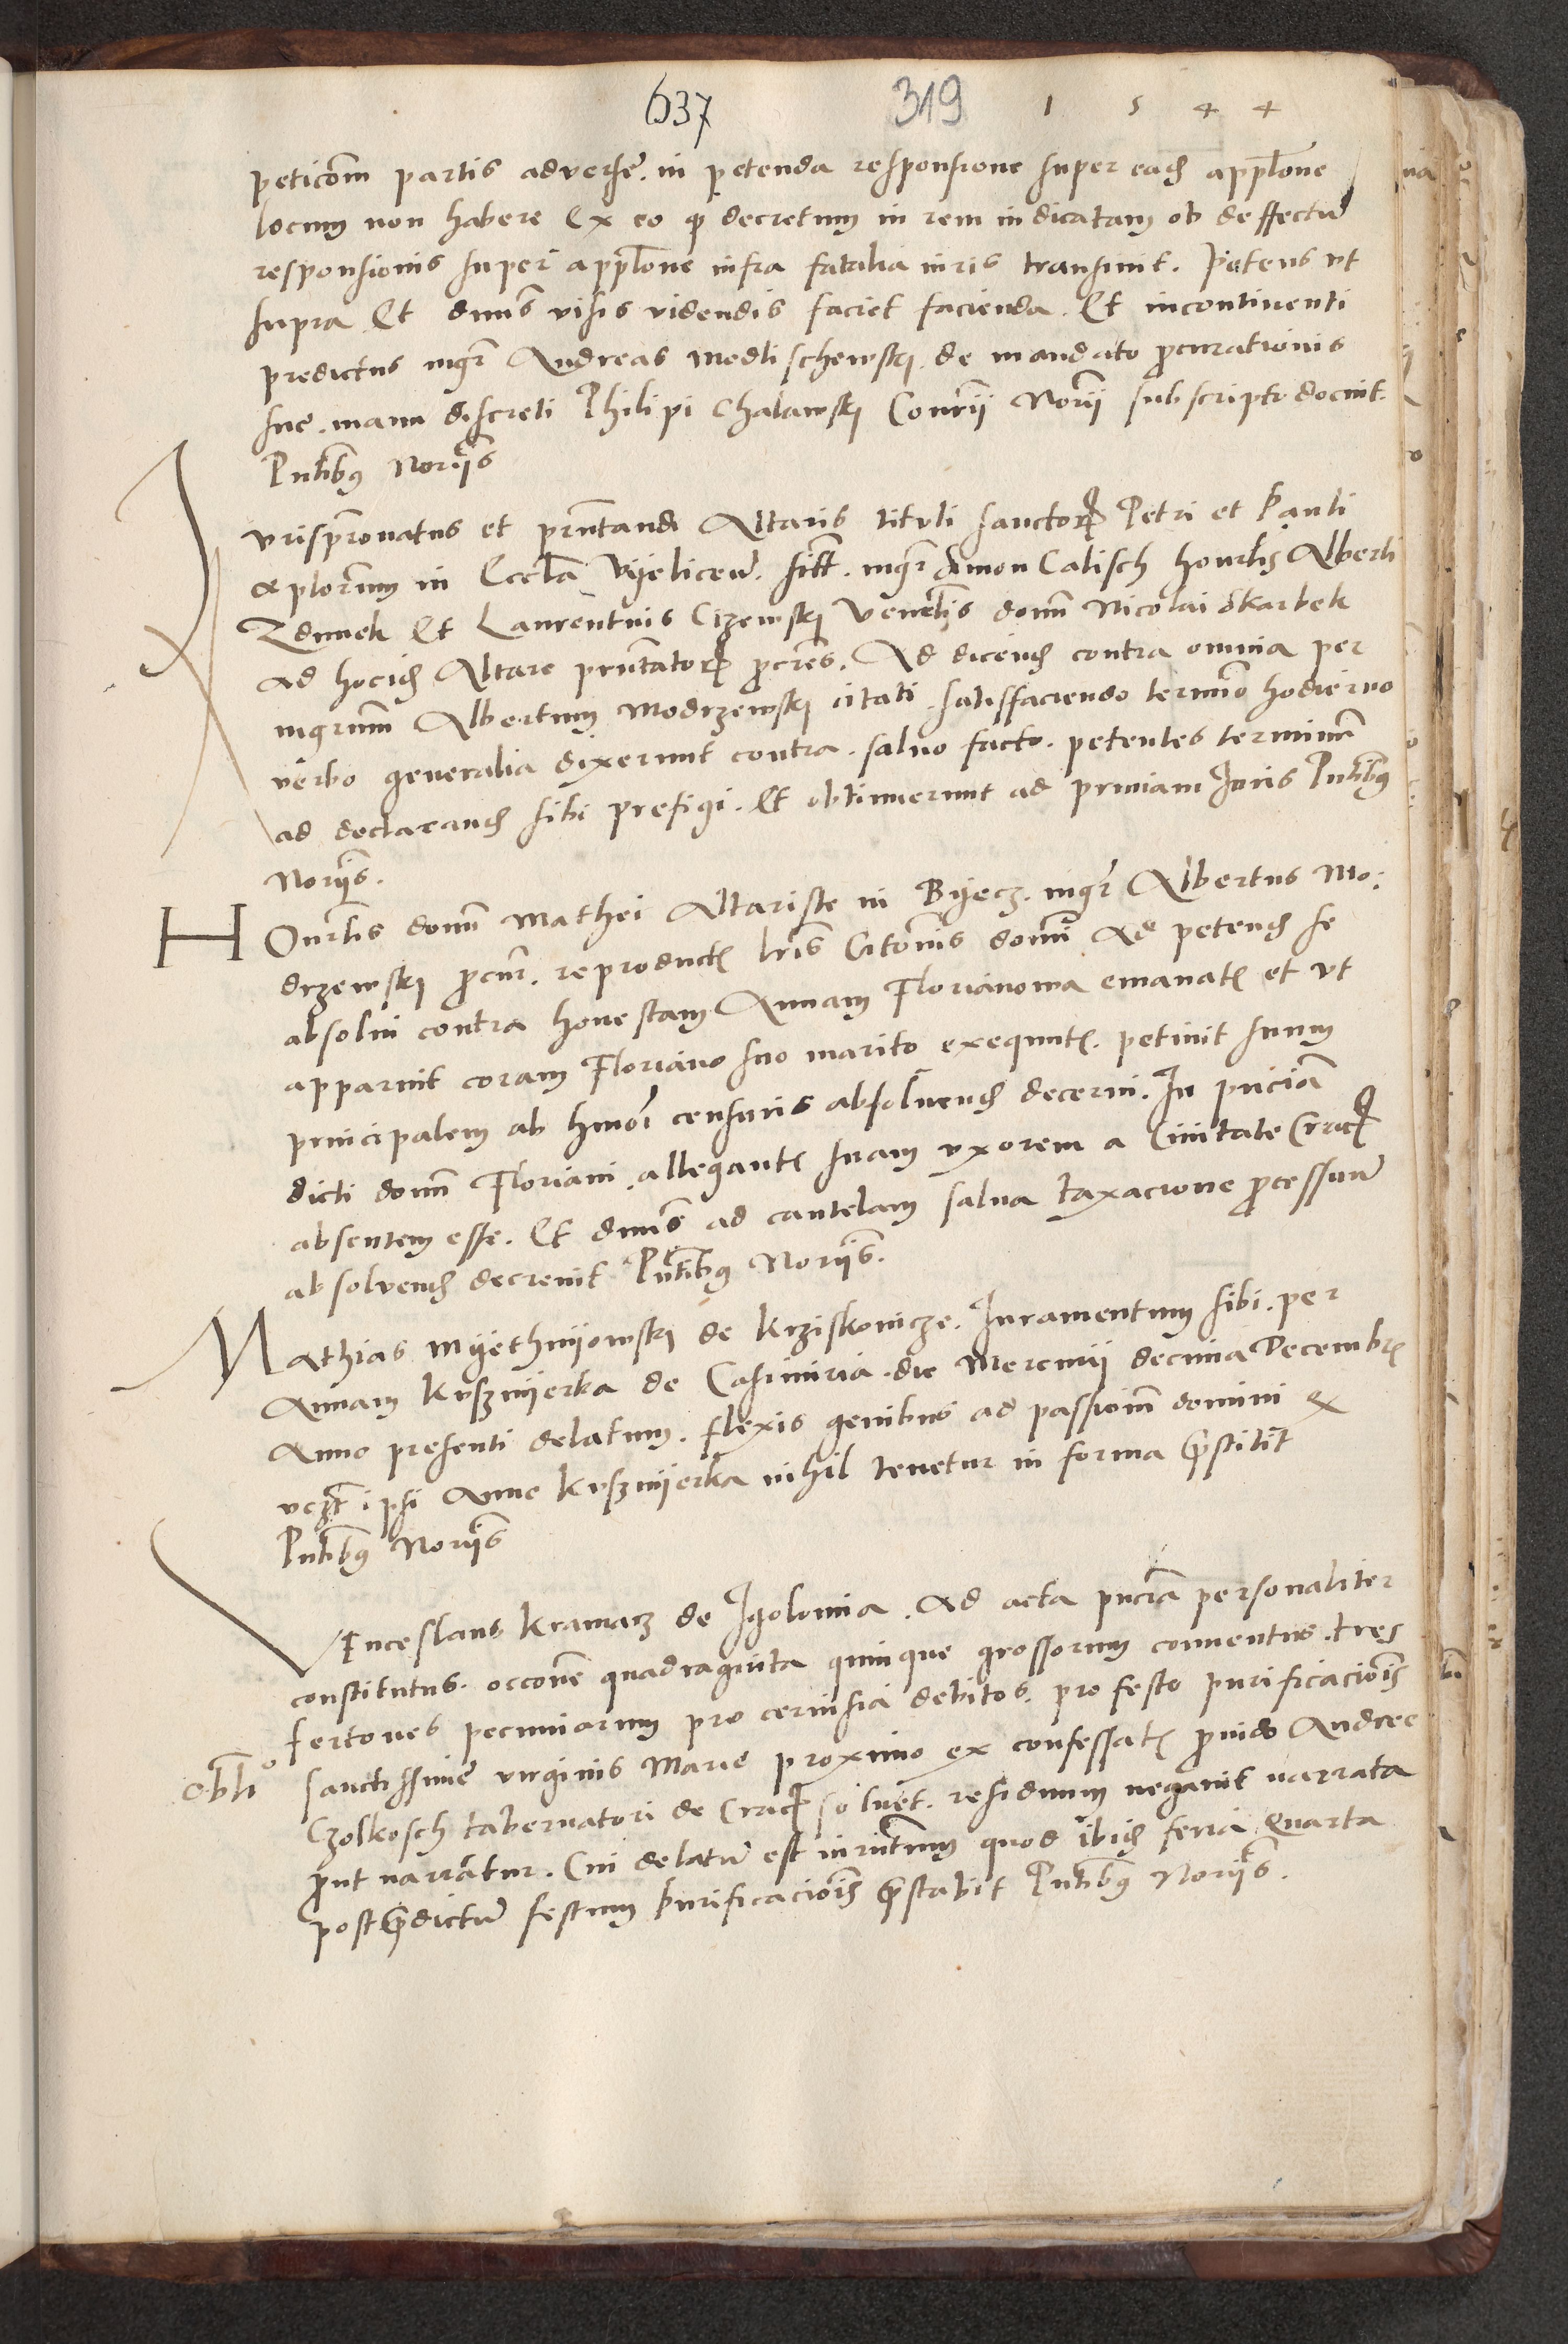 637 319 1 5 4 4
peticom partis adverse. in petenda responsione super eadem applone
locum non habere Ex eo q decretum in rem indicatam ob deffectu
responsionis super applone infra fatalia iuris transiuit. Petens vt
supra Et dnus visis videndis faciet facienda. Et incontinenti
predictus mgr Andreas Modlischewskj de mandato procurationis
sue. manu discreti Philipi Chalawskj Conrij Norij subscripto docuit.
Pntibus Norijs
Vrispronatus et prntandi Altaris tituli sanctor Petri et Pauli
aplorum in Eccla Vijelicen. mgr Simon Calisch honrlis Alberti
Zdunek Et Laurentius Cizewskj Venelis domi Nicolai Skarbek
ad hocid Altare prntator procres. Ad dicend contra omnia per
mgrum Albertum Modrzewskj citati. satisfaciendo termino hodierno
verbo generalia dixerunt contra. saluo facto. petentes terminu
ad declarand sibi prefigi. Et obtinuerunt ad primam Juris Pntibus
Norijs.
HOnrlis domi Mathei Altariste in Bijecz. mgr Albertus Mo:
drzewskj procur. reproductis lris Citonis domi ad petend se
absolui contra honestam Annam Florianowa emanatis et vt
apparuit coram Floriano suo marito exequutis. petiuit suum
principalem ab hmoi censuris absoluend decerni. In pncia
dicti domi Floriani. allegantis suam vxorem a Ciuitate Crac
absentem esse. Et dnus ad cautelam salua taxacione processuu
absoluend decreuit Pntibus Norijs.
Mathias Mijethnijowskj de Krziskouicze. Juramentum sibi. per
Annam Kuschnijerka de Casimiria. die Mercurij decima Decembris
Anno presenti delatum. flexis genibus ad passionem domini ex
ipsi Anne Kuschnijerka nihil tenetur in forma prestitit
Pntibus Norijs
VEnceslaus Kramarz de Jgolomia. Ad acta pncia personaliter
constitutus. occone quadraginta quinque grossorum conuentus. tres
fertones pecuniarum pro ceruisia debitos. pro festo purificacionis
Obllo sanctissime virginis Marie proximo ex confessatis prouido Andree
Czolkosch tabernatori de Crac soluet. residuum negauit narrata
prout narrantur. Cui delatu est iurntum quod ibid feria quarta
post predictu festum purificacionis prestabit Pntibus Norijs.